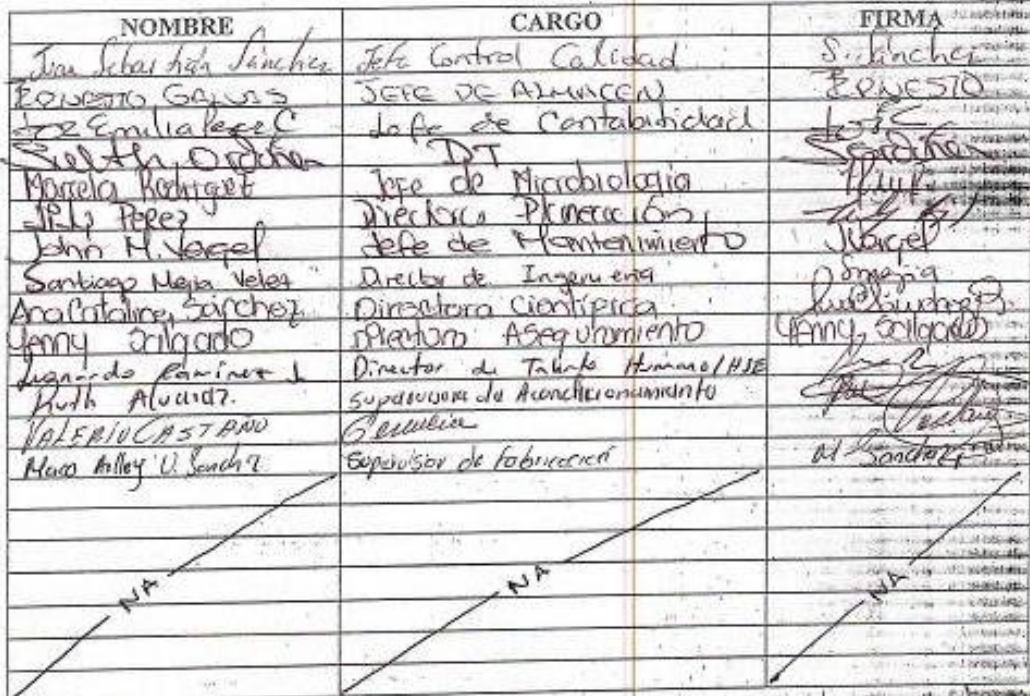 NOMBRE CARGO FIRMA
Juan Sebastián Sánchez Jefe Control Calidad S. Sánchez
ERNESTO GALVIS JEFE DE ALMACEN ERNESTO
Luz Emilia C Jefe de Contabilidad
Ordoñez DT
Marcela Rodriguez Jefe de Microbiologia
Perez Directora Planeación
John M. Vergel Jefe de Mantenimiento JVergel
Santiago Mejia Velez Director de Ingenieria Smejia
Ana Catalina Sánchez Directora Científica
Yenny Salgado Directora Aseguramiento Yenny Salgado
Leonardo Ramirez L Director de Talento Humano/HSE
Ruth Alvarez. Supervisora de Acondicionamiento
VALERIO CASTAÑO Gerencia
Marco V. Sanchez Supervisor de Fabricación M Sanchez
NA NA NA